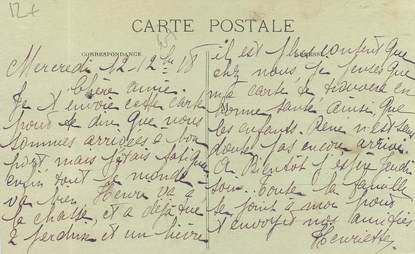 12+
CARTE POSTALE
CORRESPONDANCE
Mercredi 12-12
Chère amie.
Je t'envoie cette carte
pour te dire que nous
sommes arrivées à bon
port mais j'étais fatiguée
enfin tout le monde
va bien. Henri va à
la chasse et a déjà tué
2 perdrix et un lièvre
il est plus content que
chez nous. Je pense que
ma carte te trouvera en
bonne santé ainsi que
les enfants. n'est sans
doute pas encore arrivé.
A Bientôt j'espère
Toute la famille
se joint à moi pour
t'envoyer nos amitiés
Henriette